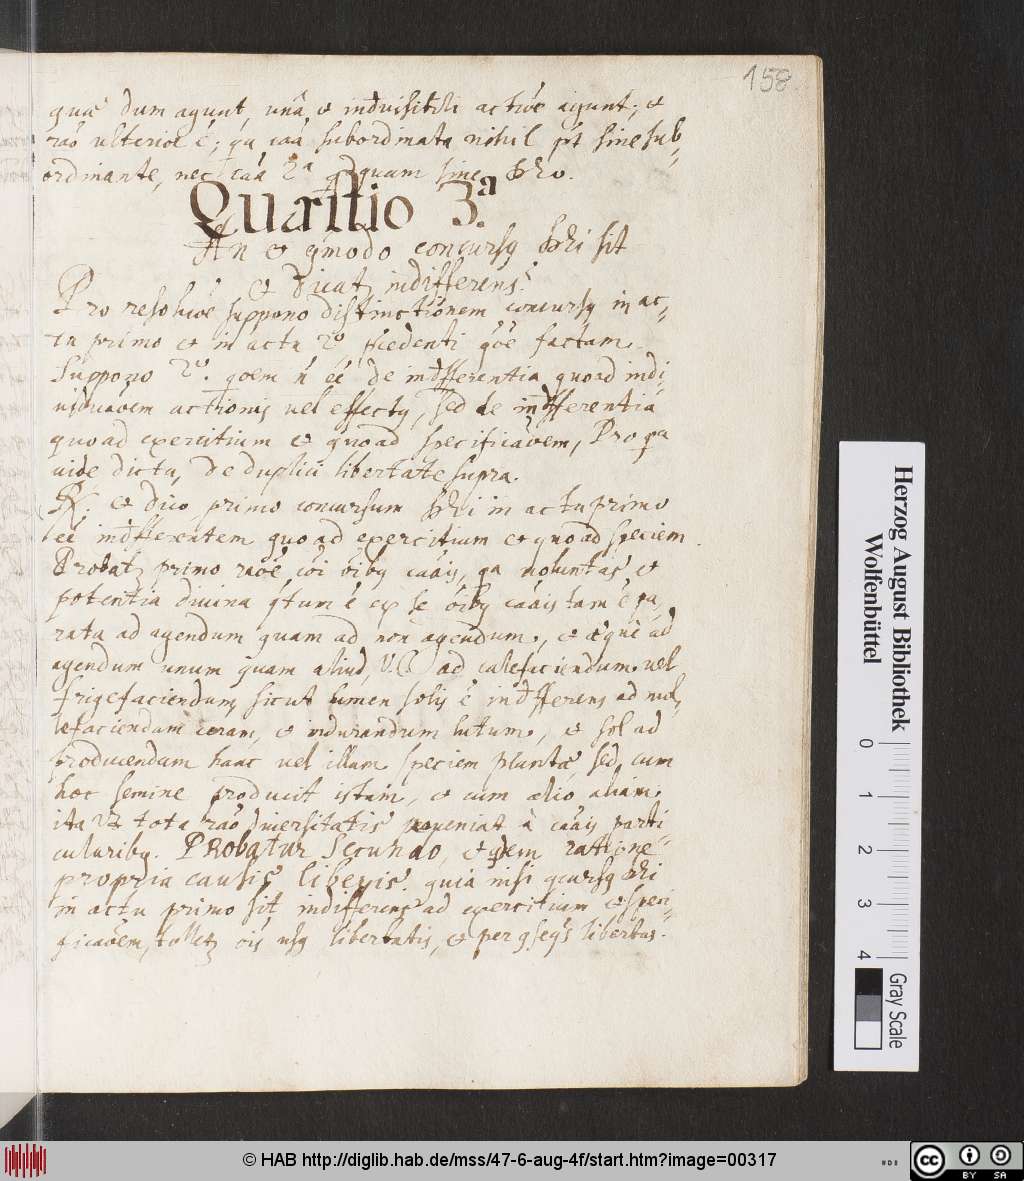 158
quae dum agunt, unâ et indivisibili actiõe agunt; et
rão ulterior é; qa caâ subordinata nihil pt sine sub-
ordinante, nec caâ 2a qdquam sine
Quæstio 3.a
An et qmodo concursq sit
et dicatz indifferens?
Pro resoluõe suppono distinctiõnem concursq in ac-
tu primo et in actu 2o pcedenti qõe factam.
Suppono 2o. qoem ñ éé de indifferentia quoad indi-
viduaõem actionis vel effectq, sed de indifferentia
quoad exercitium et quoad specificaõem, Pro qa
vide dicta, de duplici libertate supra.
et dico primo concursum in actu primo
éé indifferentem quoad exercitium et quoad speciem.
Probatz primo raõe cõi õibq caâis, qa voluntas et
potentia divina qtum é ex se õibq caâis tam é pa-
rata ad agendum quam ad non agendum, et æquè ad
agendum unum quam aliud, V.G. ad calefaciendum vel
frigefaciendum, sicut lumen solis é indifferens ad mol-
lefaciendam ceram, et indurandum lutum, et sol ad
producendam hanc vel illam speciem plantæ, sed cum
hoc semine producit istam, et cum alio aliam.
ita ut tota rão diversitatis proveniat à caâis parti-
cularibq. PRobatur Secundo, et qdem ratione
propria causis liberis. quia nisi qcursq
in actu primo sit indifferens ad exercitium et speci-
ficaõem, tolletz õis usq libertatis, et per qseqs libertas.
Herzog August Bibliothek
Wolfenbüttel
0 1 2 3 4
Gray Scale
© HAB http://diglib.hab.de/mss/47-6-aug-4f/start.htm?image=00317
cc BY SA